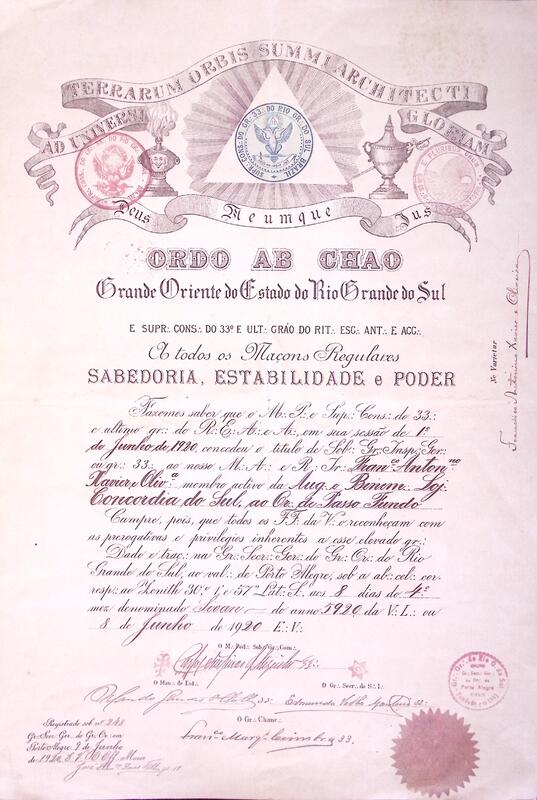 TERRARUM ORBIS SUMMI ARCHITECTI
AD UNIVERSI
GLORIAM
SUPR∴ CONS∴ DO GR∴ 33∴ DO RIO GR∴ DO SUL BRAZIL
E PLURIBUS UNUM
Deus Meumque Jus
ORDO AB CHAO
Grande Oriente do Estado do Rio Grande do Sul
E SUPR∴ CONS∴ DO 33º E ULT∴ GRÁO DO RIT∴ ESC∴ ANT∴ E ACC∴
A todos os Maçons Regulares
SABEDORIA, ESTABILIDADE e PODER
Fazemos saber que o M∴ P∴ e Sup∴ Cons∴ do 33∴
e ultimo gr∴ do R∴ E∴ A∴ e A∴, em sua sessão de 1º
de Junho, de 1920, concedeu o titulo de Sob∴ Gr∴ Insp∴ Ger∴
ou gr∴ 33∴ ao nosso M∴ A∴ e R∴ Ir∴ Franco Antonno
Xavier e Olivª membro activo da Aug∴ e Benem∴ Loj∴
Concordia do Sul, ao Or∴ de Passo Fundo
Cumpre, pois, que todos os F∴ F∴ da V∴ o reconheçam com
as prerogativas e privilegios inherentes a esse elevado gr∴
Dado e traç∴ na Gr∴ Secr∴ Ger∴ do Gr∴ Or∴ do Rio
Grande do Sul, ao val∴ de Porto Alegre, sob a ab∴ cel∴ cor-
resp∴ ao Zenith 30º∴ 1', e 57" Lat∴ S∴ aos 8 dias do 4º
mez denominado do anno 5920 da V∴ L∴ ou
8 de Junho de 1920 E∴ V∴
O M∴ Pod∴ Sob∴ Gr∴ Com∴
33∴
O Man∴ de Ent∴
O Gr∴ Secr∴ do S∴ I∴
33∴
O Gr∴ Chanc∴
33
Registrado sob nº 248
Gr∴ Secr∴ Ger∴ do Gr∴ Or∴ em
Porto Alegre 9 de Junho
de 1920 E∴ V∴
Ne Varietur
Francisco Antonino Xavier e Oliveira
Gr∴ Or∴ do Rio G. do Sul
Gr∴ Sec∴ Ger∴
Porto Alegre